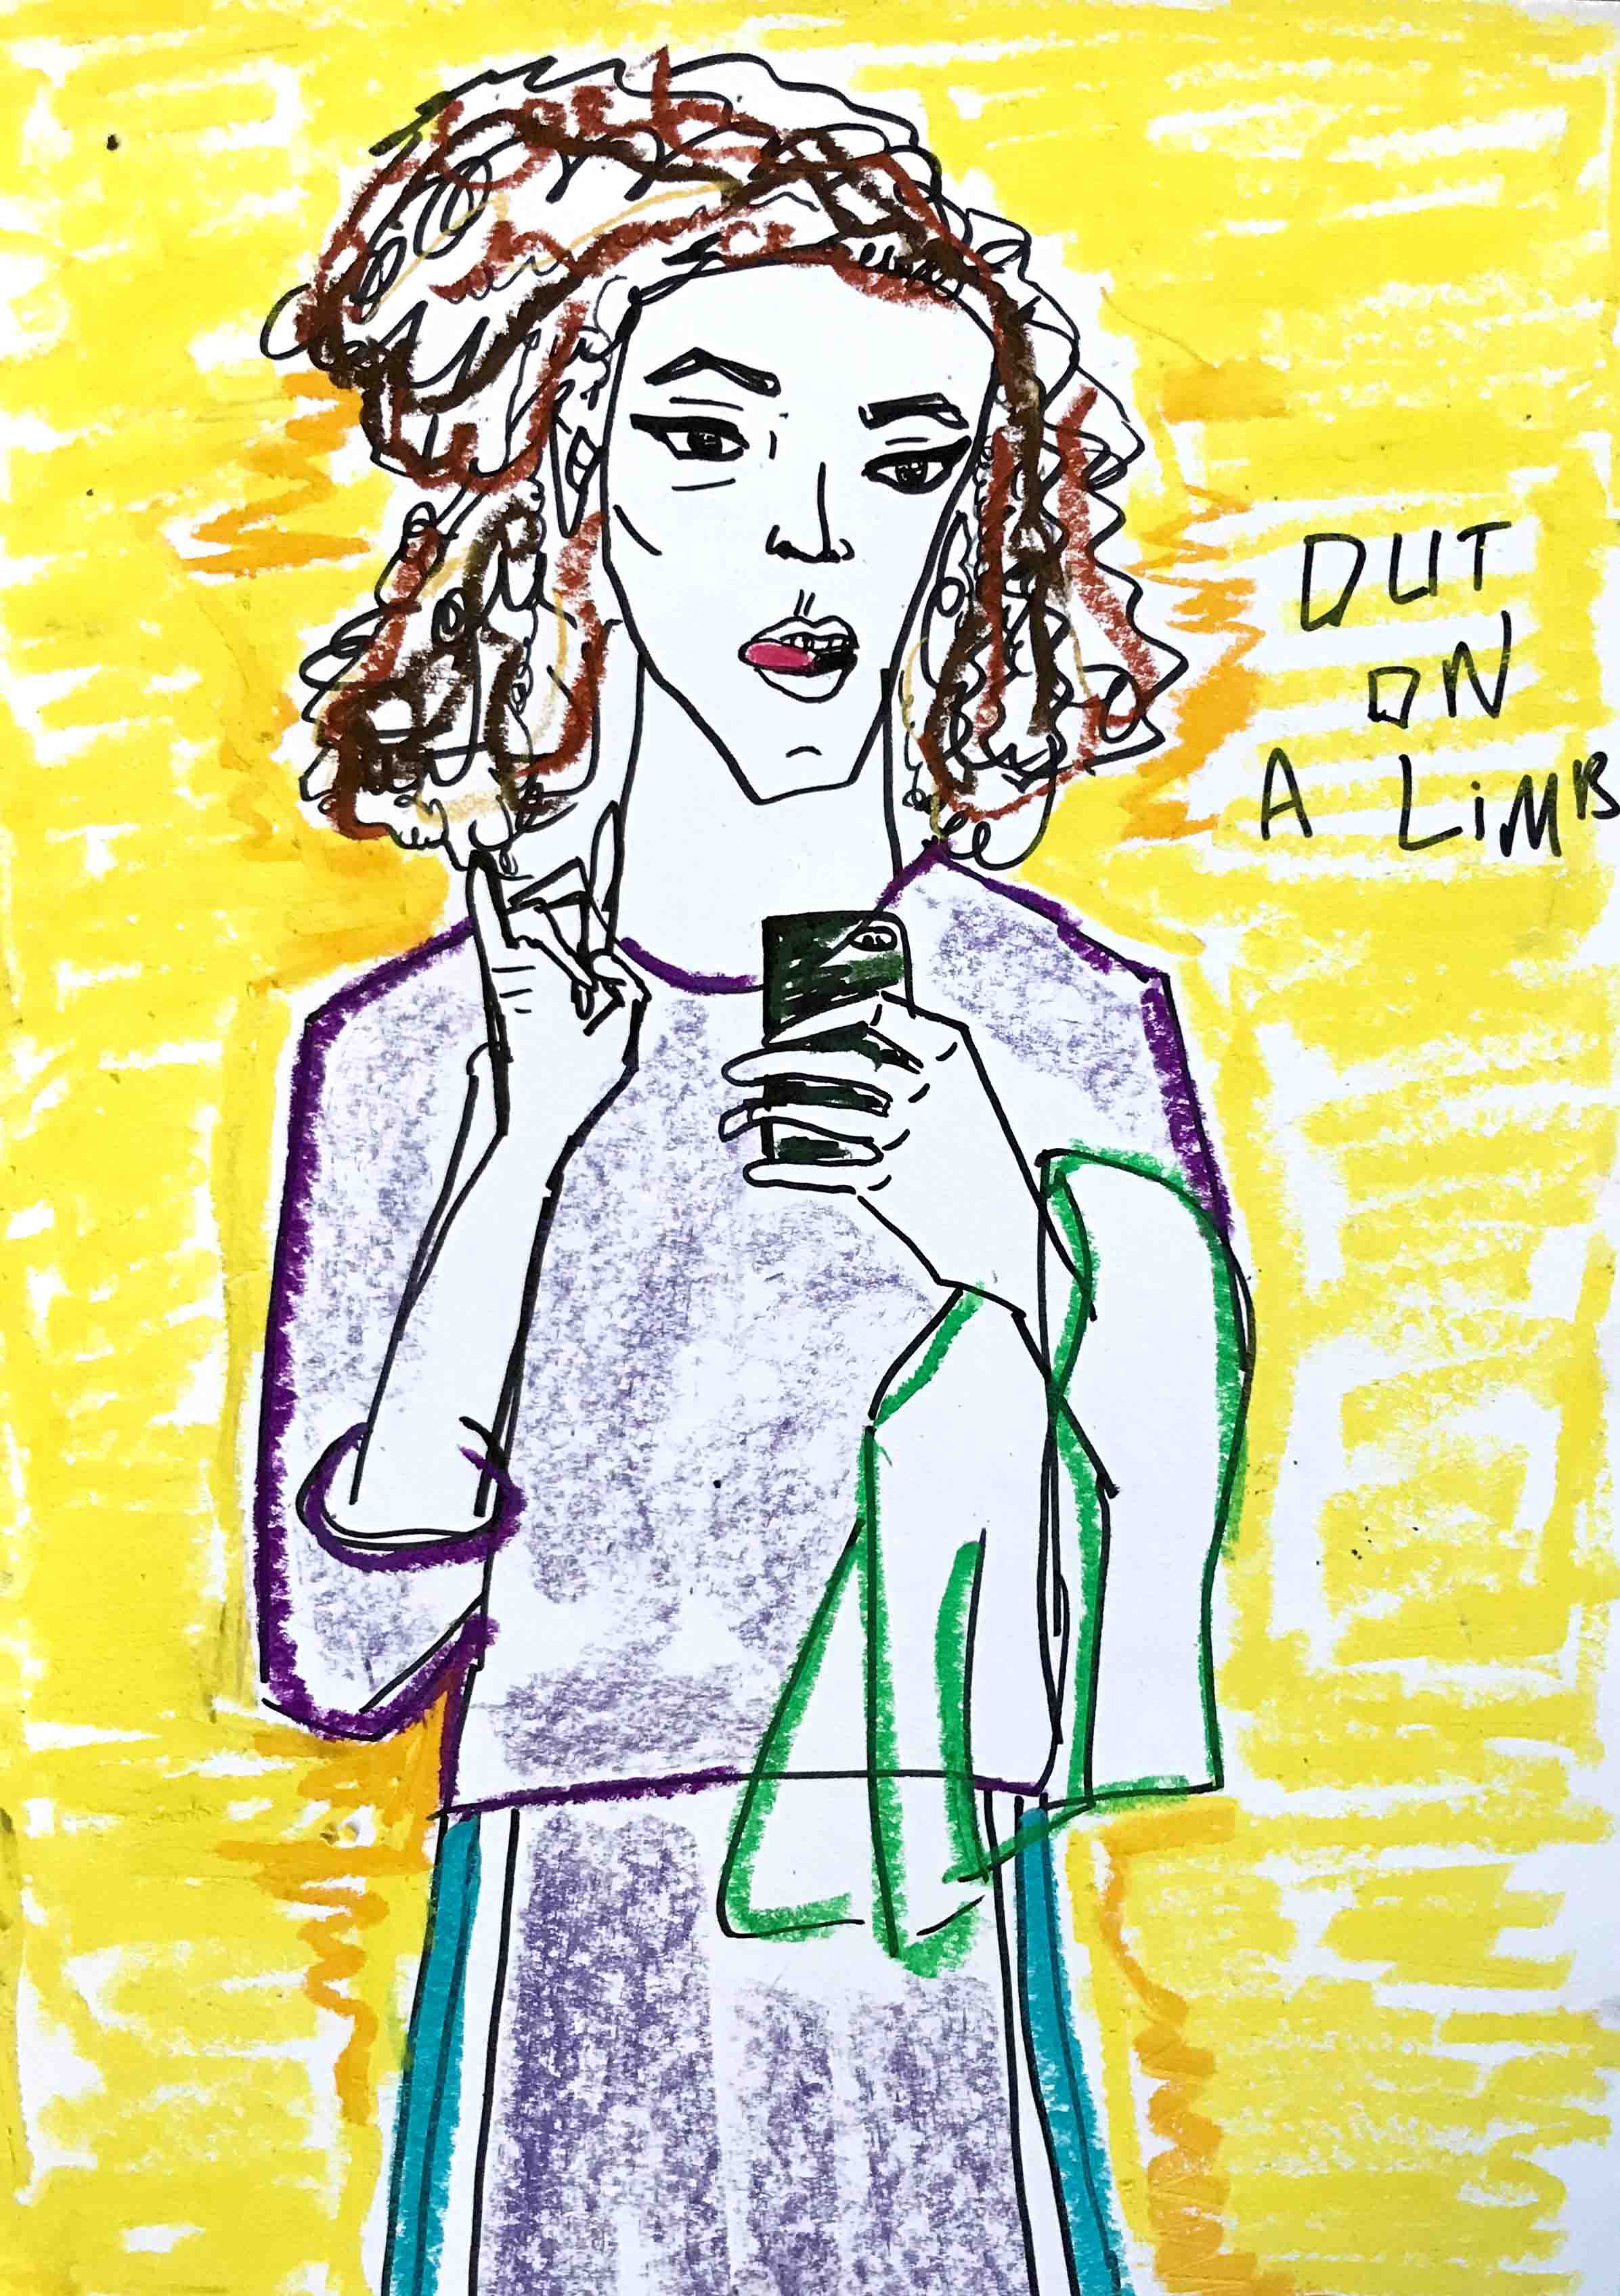 OUT
ON
A LiMB